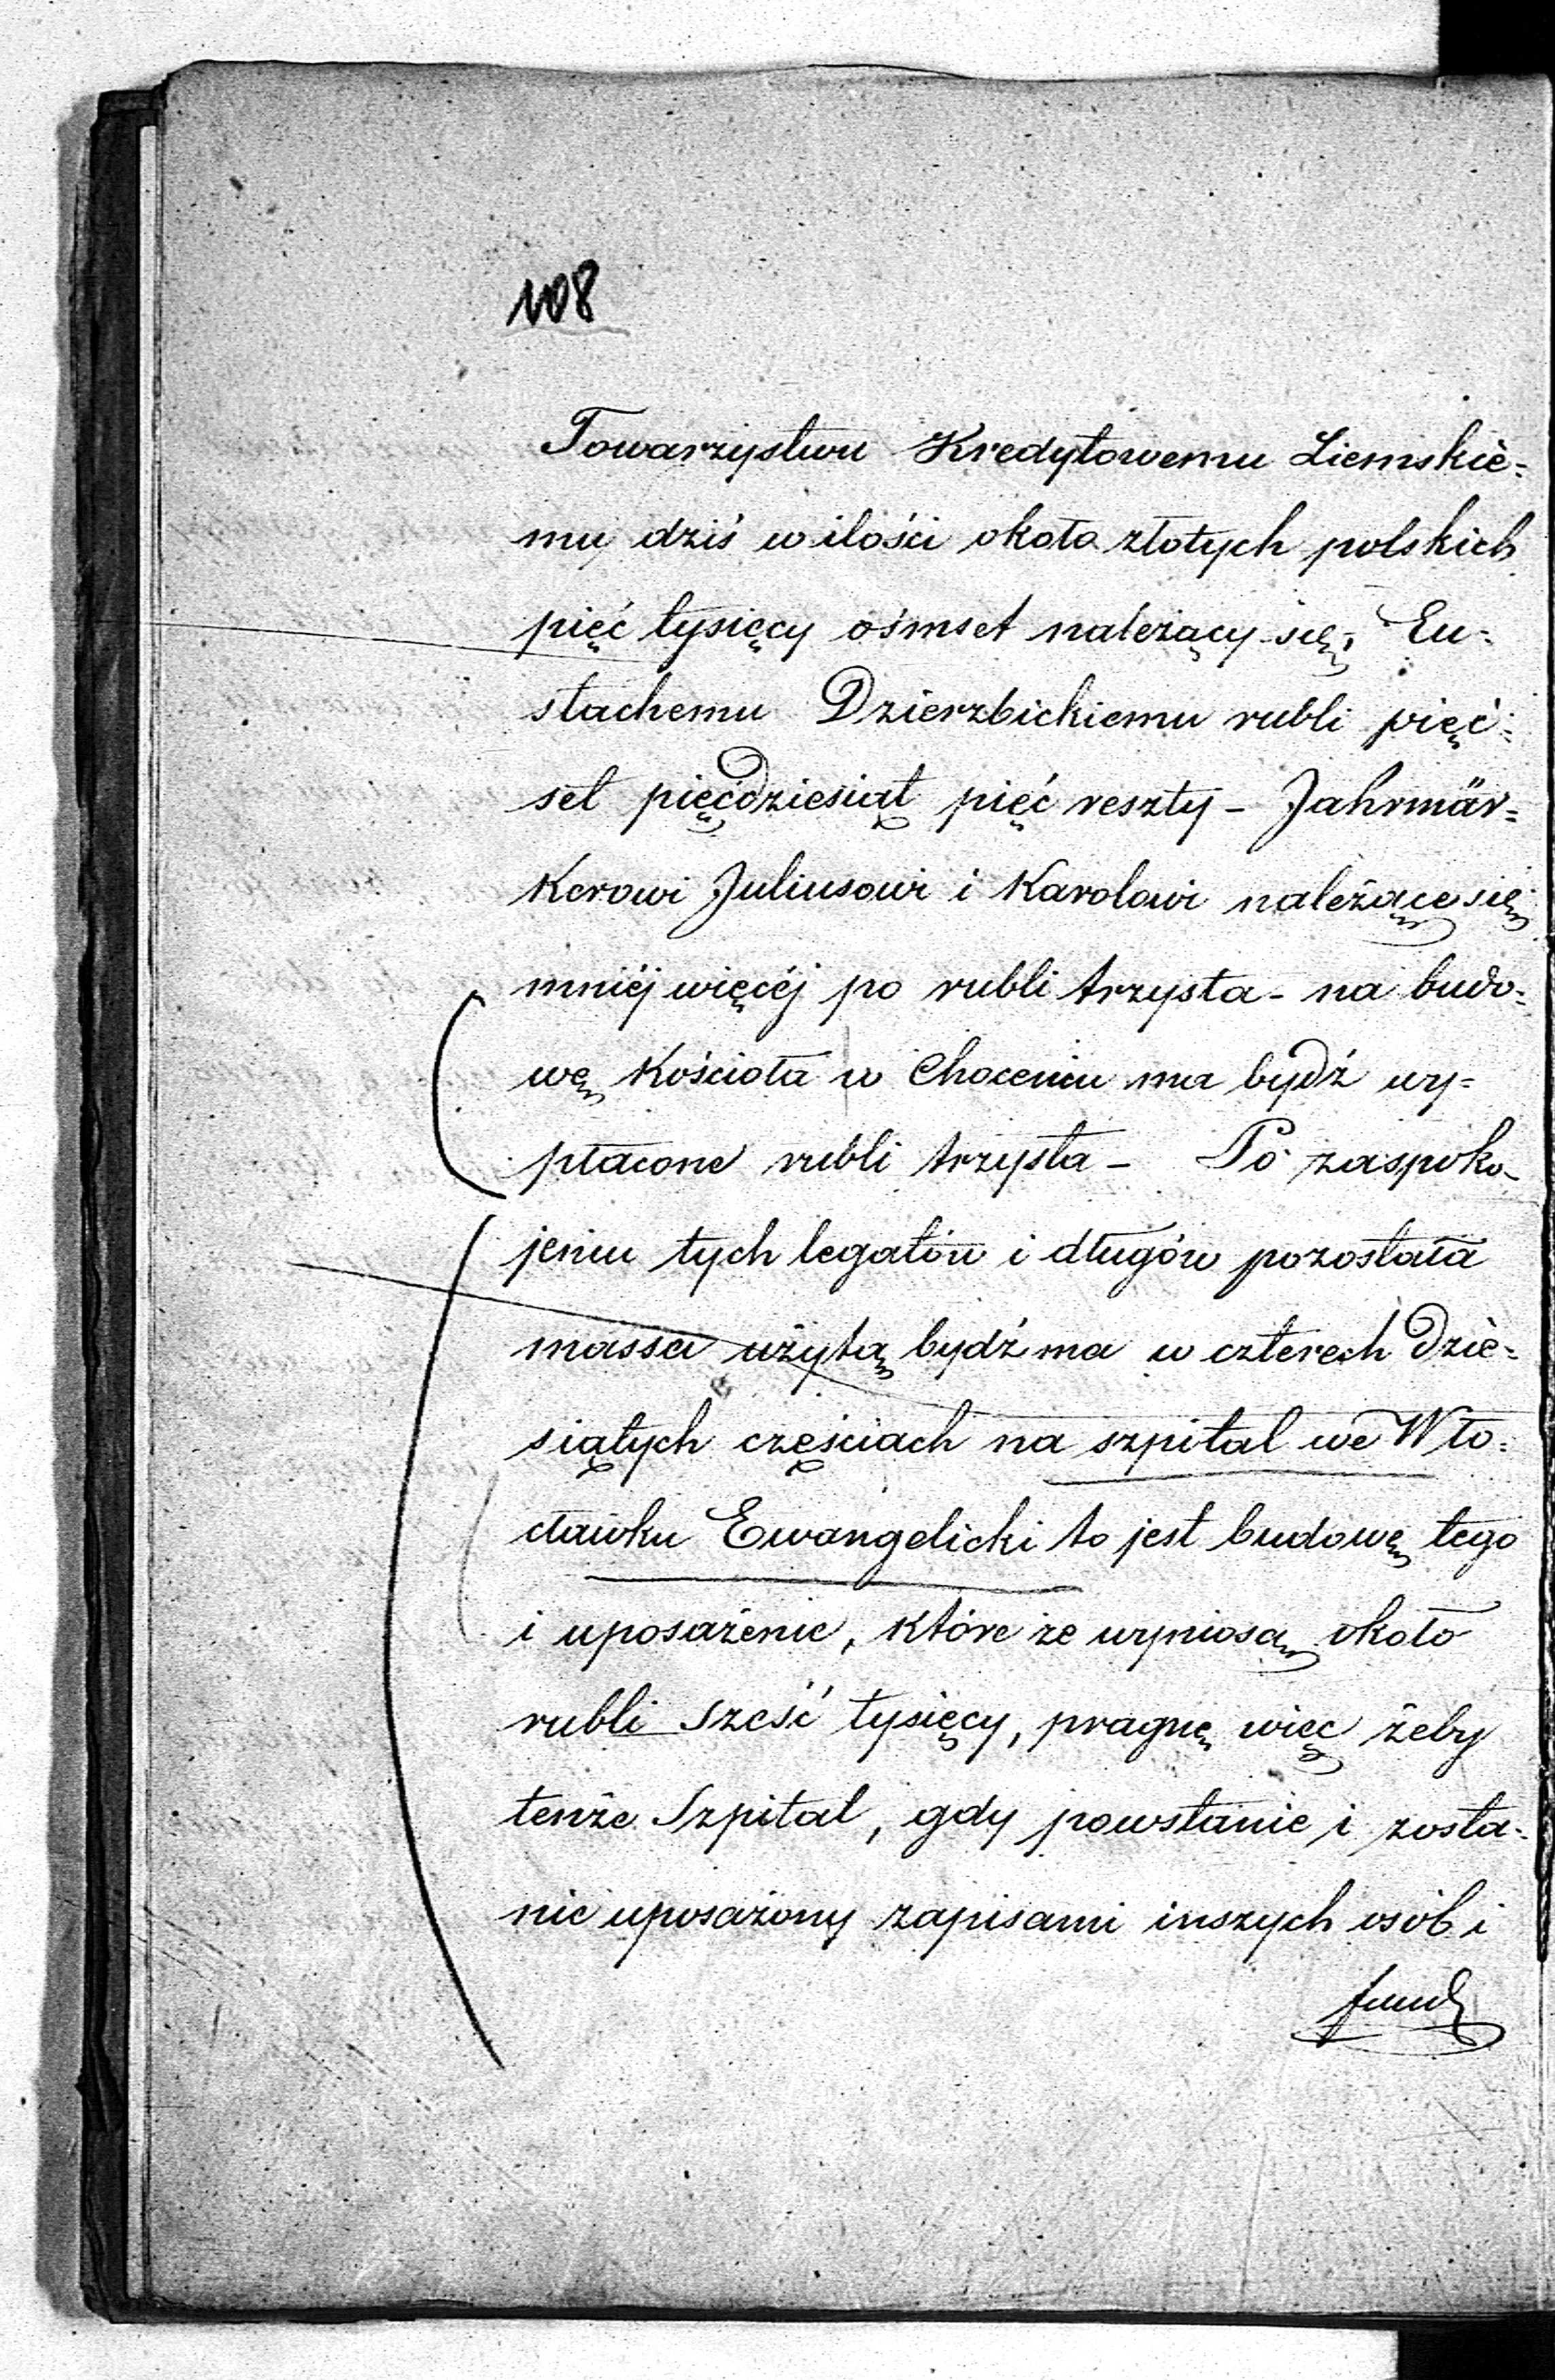 108
Towarzystwu Kredytowemu Ziemskie=
mu dziś w ilości około złotych polskich
pięć tysięcy ośmset należący się, Eu=
stachemu Dzierzbickiemu rubli pięć=
set pięćdziesiąt pięć reszty – Jahrmär=
kerowi Juliusowi i Karolowi należące się
mniéj więcéj po rubli trzysta – na budo=
wę Kościoła w Choceniu ma bydź wy=
płacone rubli trzysta – Po zaspoko-
jeniu tych legatów i długów pozostała
massa użytą bydź ma w czterech dzie=
siątych częściach na szpital we Wło=
cławku Ewangelicki to jest budowę tego
i uposażenie, które że wyniosą około
rubli sześć tysięcy, pragnę więc żeby
tenże Szpital, gdy powstanie i zosta=
nie uposażony zapisami inszych osób i